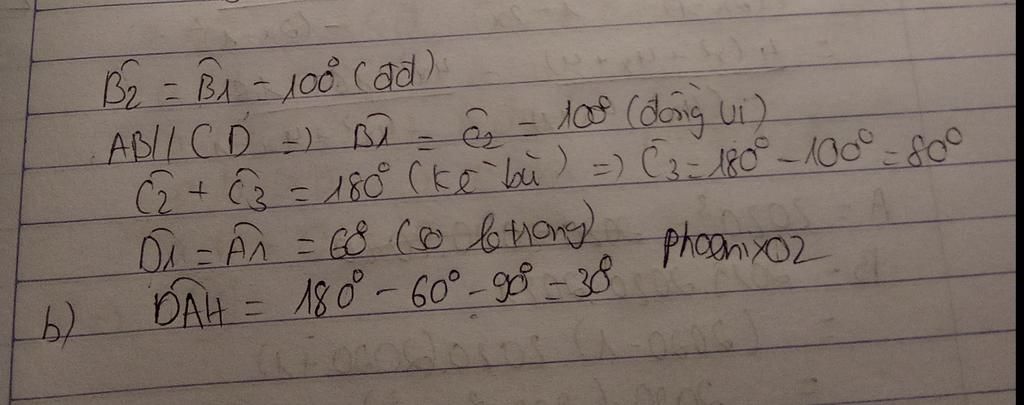 B̂2 = B̂1 = 100° (đđ)
AB // CD => B̂1 = Ĉ2 = 100° (đồng vị)
Ĉ2 + Ĉ3 = 180° (kề bù) => Ĉ3 = 180° - 100° = 80°
D̂1 = Â1 = 60° (so le trong) phoenix02
b) DÂH = 180° - 60° - 90° = 30°